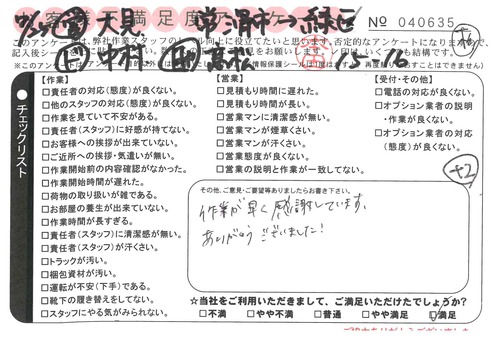 お客様満足度アンケート
No 040635
【作業】
□責任者の対応(態度)が良くない。
□他のスタッフの対応(態度)が良くない。
□作業を見ていて不安がある。
□責任者(スタッフ)に好感が持てない。
□お客様への挨拶が出来ていない。
□ご近所への挨拶・気遣いが無い。
□作業開始前の内容確認がなかった。
□作業開始時間が遅れた。
□荷物の取り扱いが雑である。
□お部屋の養生が出来ていない。
□作業時間が長すぎる。
□責任者(スタッフ)に清潔感が無い。
□責任者(スタッフ)が汗くさい。
□トラックが汚い。
□梱包資材が汚い。
□運転が不安(下手)である。
□靴下の履き替えをしてない。
□スタッフにやる気がみられない。
【営業】
□見積もり時間に遅れた。
□見積もり時間が長い。
□営業マンに清潔感が無い。
□営業マンが煙草くさい。
□営業マンが汗くさい。
□営業態度が良くない。
□営業の説明と作業が一致してない。
【受付・その他】
□電話の対応が良くない。
□オプション業者の説明
・作業が良くない。
□オプション業者の対応
(態度)が良くない。
+2
チェックリスト
その他、ご意見・ご要望等ありましたらお書き下さい。
作業が早く感謝しています。
ありがとうございました!
☆当社をご利用いただきまして、ご満足いただけたでしょうか?
□不満 □やや不満 □普通 □やや満足 □満足